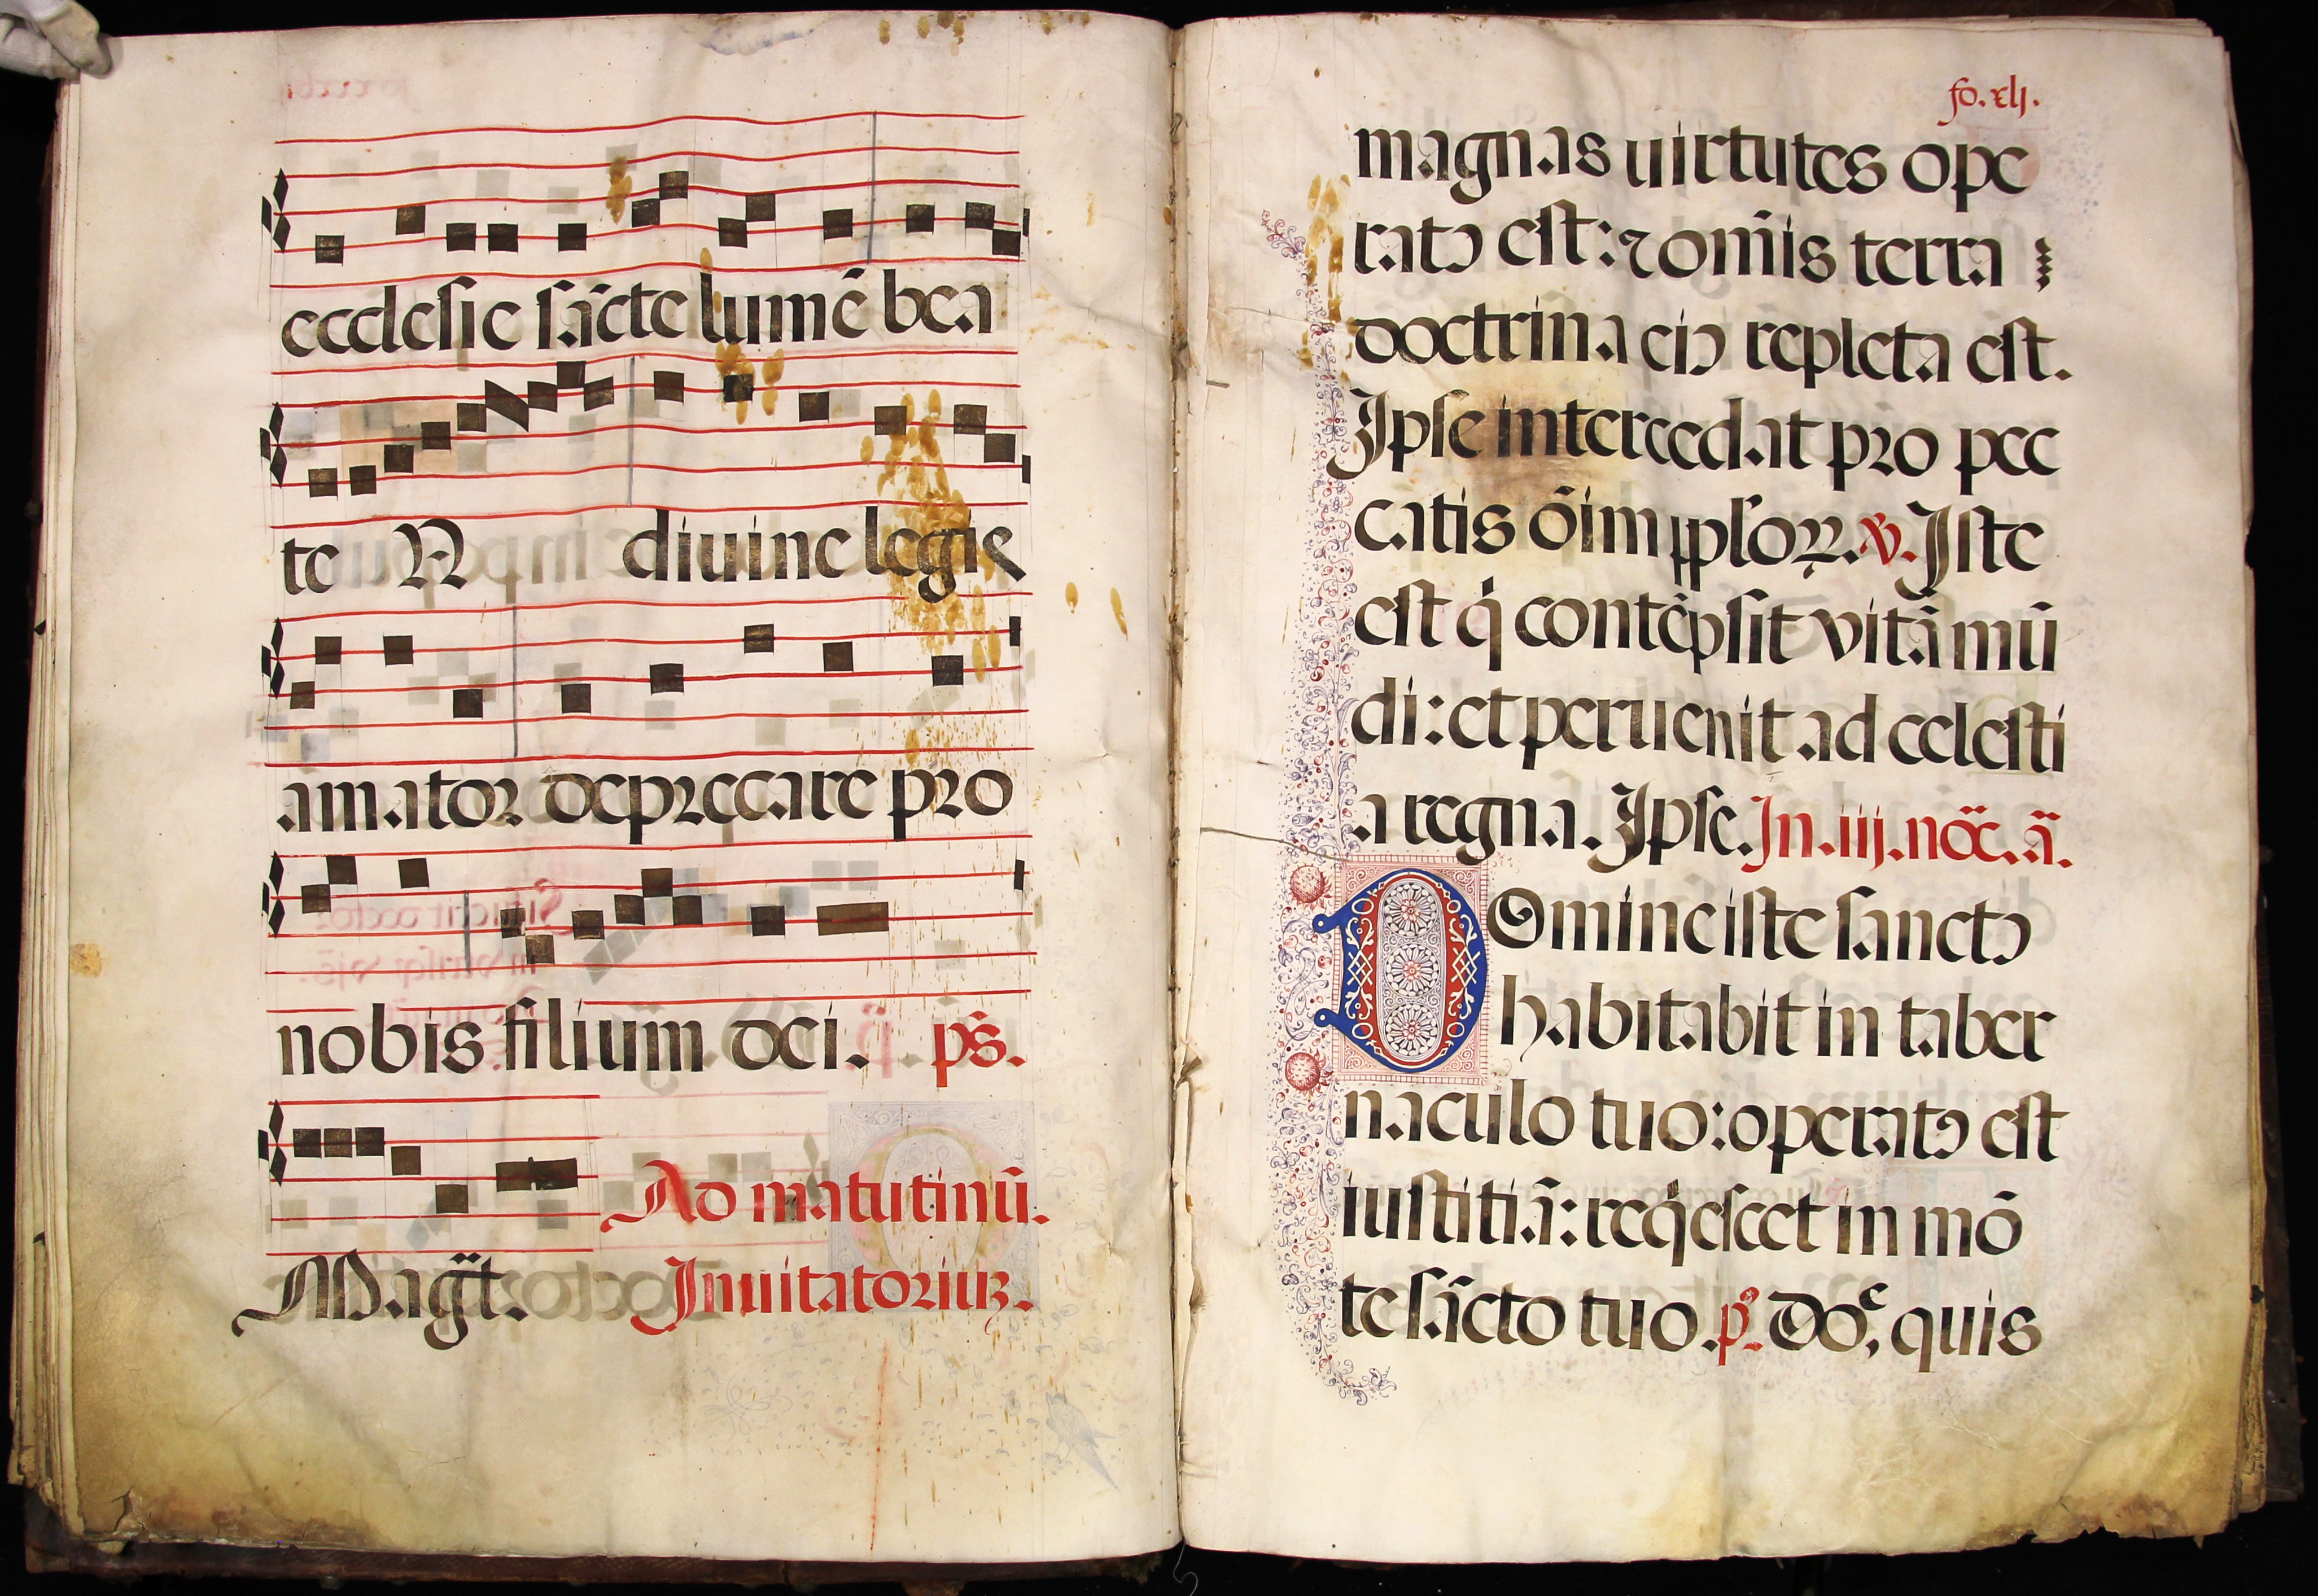 ecclesie sācte lumē bea
te N diuine legis
amator deprecare pro
nobis filium dei. pš.
Ad matutinū.
Magt̄. Inuitatoriuʒ.
fo. xlj.
magnas uirtutes ope
ratꝯ est: ⁊ om̄is terra
doctrina eiꝯ repleta est.
Ipse intercedat pro pec
catis oīm pplōꝝ. ℣. Iste
est q̇ contēpsit vitā mū
di: et peruenit ad celesti
a regna. Ipse. In .iij. noc̄. ā.
Domine iste sanctꝯ
habitabit in taber
naculo tuo: operatꝯ est
iustitiā: req̇escet in mō
te sācto tuo. p̄. Doᵉ, quis